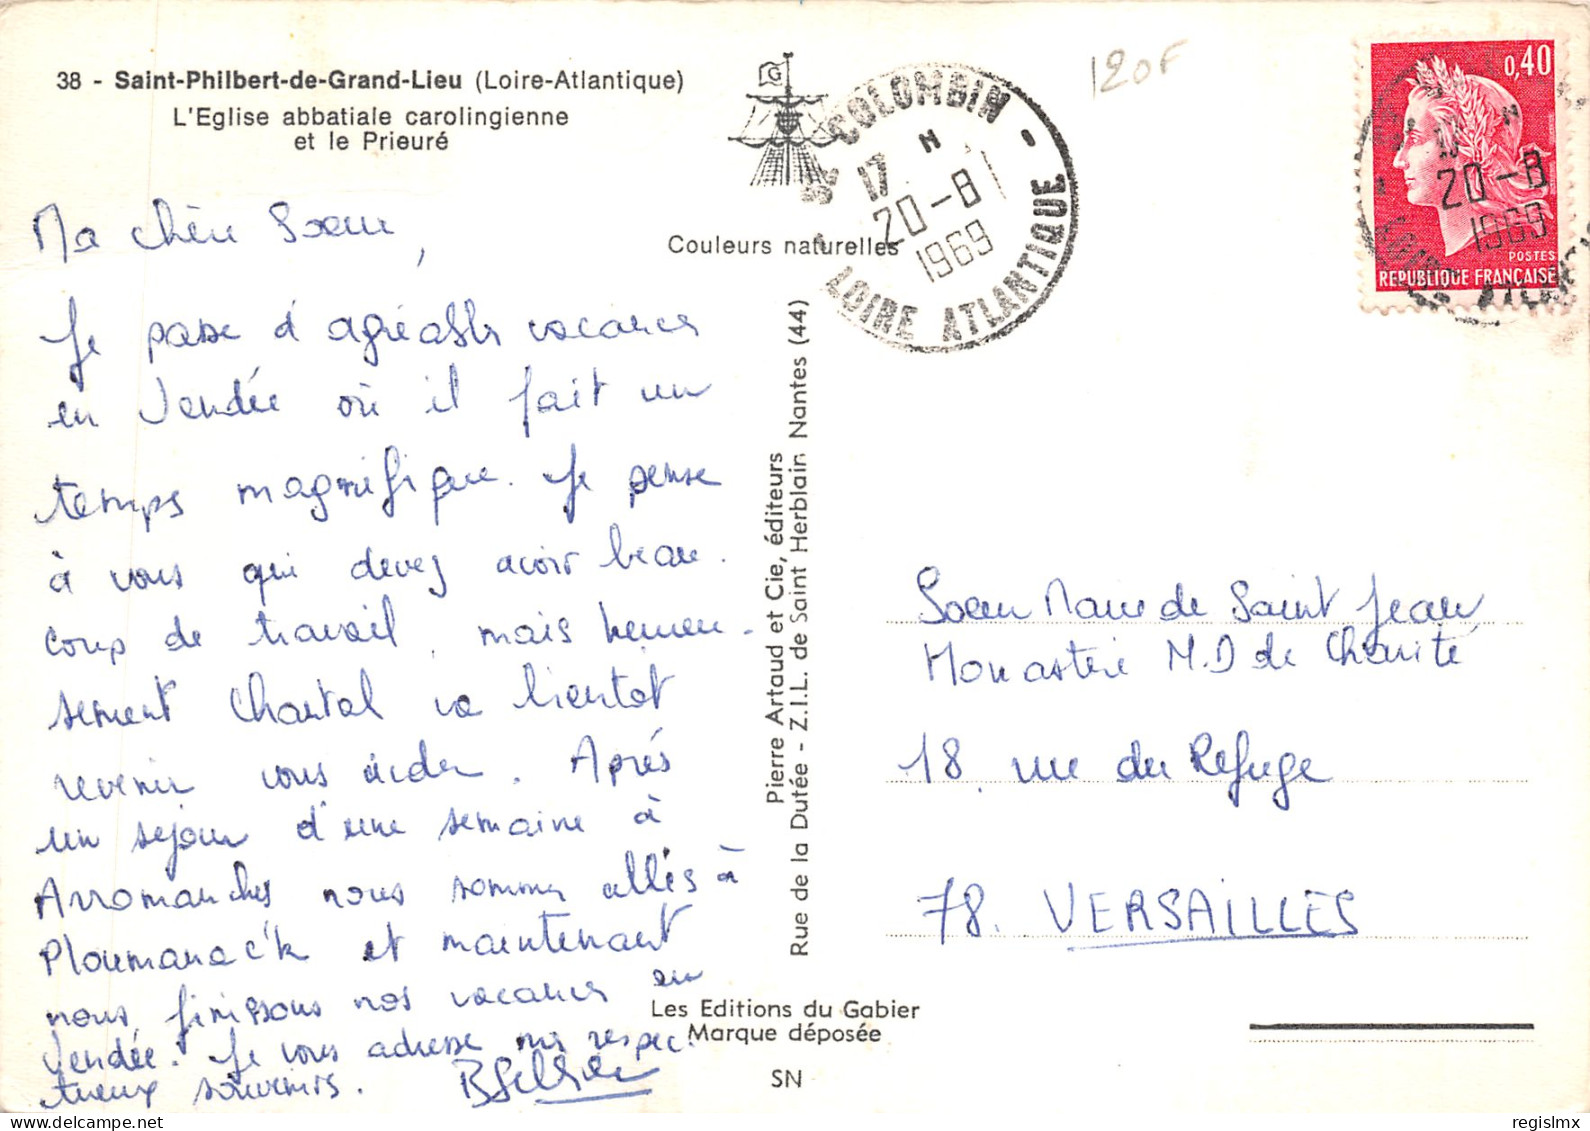 38 - Saint-Philbert-de-Grand-Lieu (Loire-Atlantique)
L'Eglise abbatiale carolingienne
et le Prieuré
Ma chère Soeur,
Je passe d'agréables vacances
en Vendée où il fait un
temps magnifique. Je pense
à vous qui devez avoir beau-
coup de travail, mais heureu-
sement Chantal va bientot
revenir vous aider. Après
un séjour d'une semaine à
Arromanches nous sommes allés à
Ploumanac'k et maintenant
nous finissons nos vacances en
Vendée. Je vous adresse mes respec-
tueux souvenirs.
G
Couleurs naturelles
COLOMBIN
17 H
20-8
1969
LOIRE ATLANTIQUE
Pierre Artaud et Cie, éditeurs
Rue de la Dutée - Z.I.L. de Saint Herblain Nantes (44)
Les Editions du Gabier
Marque déposée
SN
120F
0,40
POSTES
REPUBLIQUE FRANÇAISE
17 H
20-8
1969
Soeur Marie de Saint Jean
Monastère N.D de Charité
18 rue du Refuge
78. VERSAILLES
regislmx
www.delcampe.net